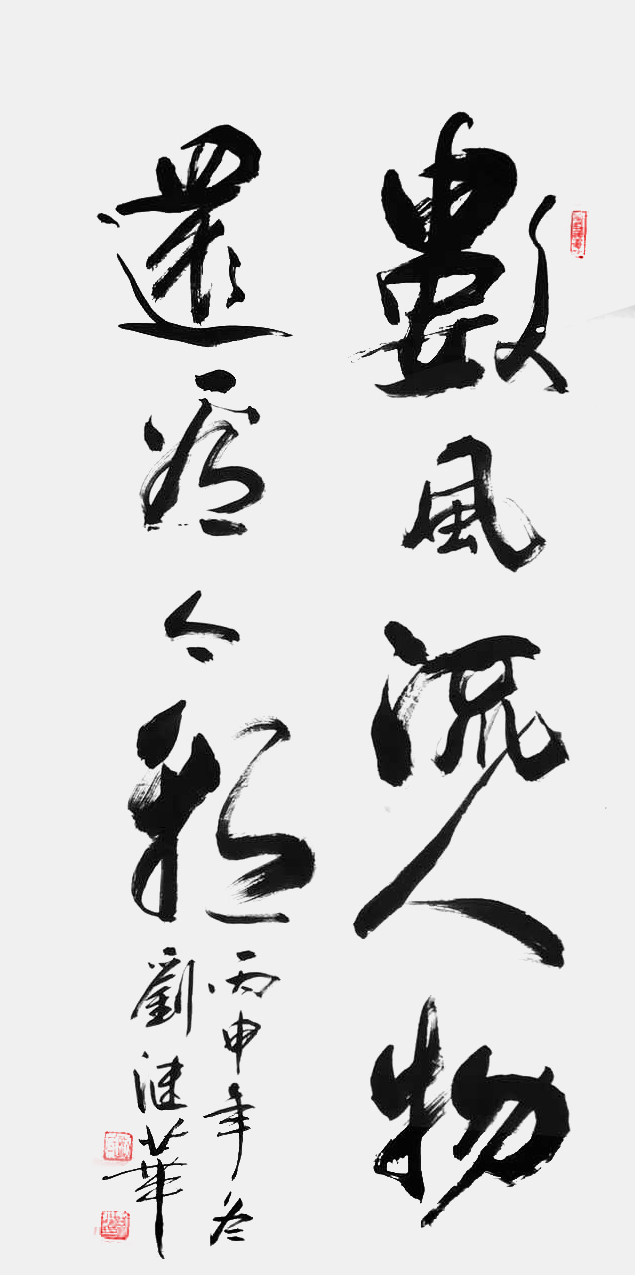 數風流人物
還看今朝
丙申年冬
劉漣華